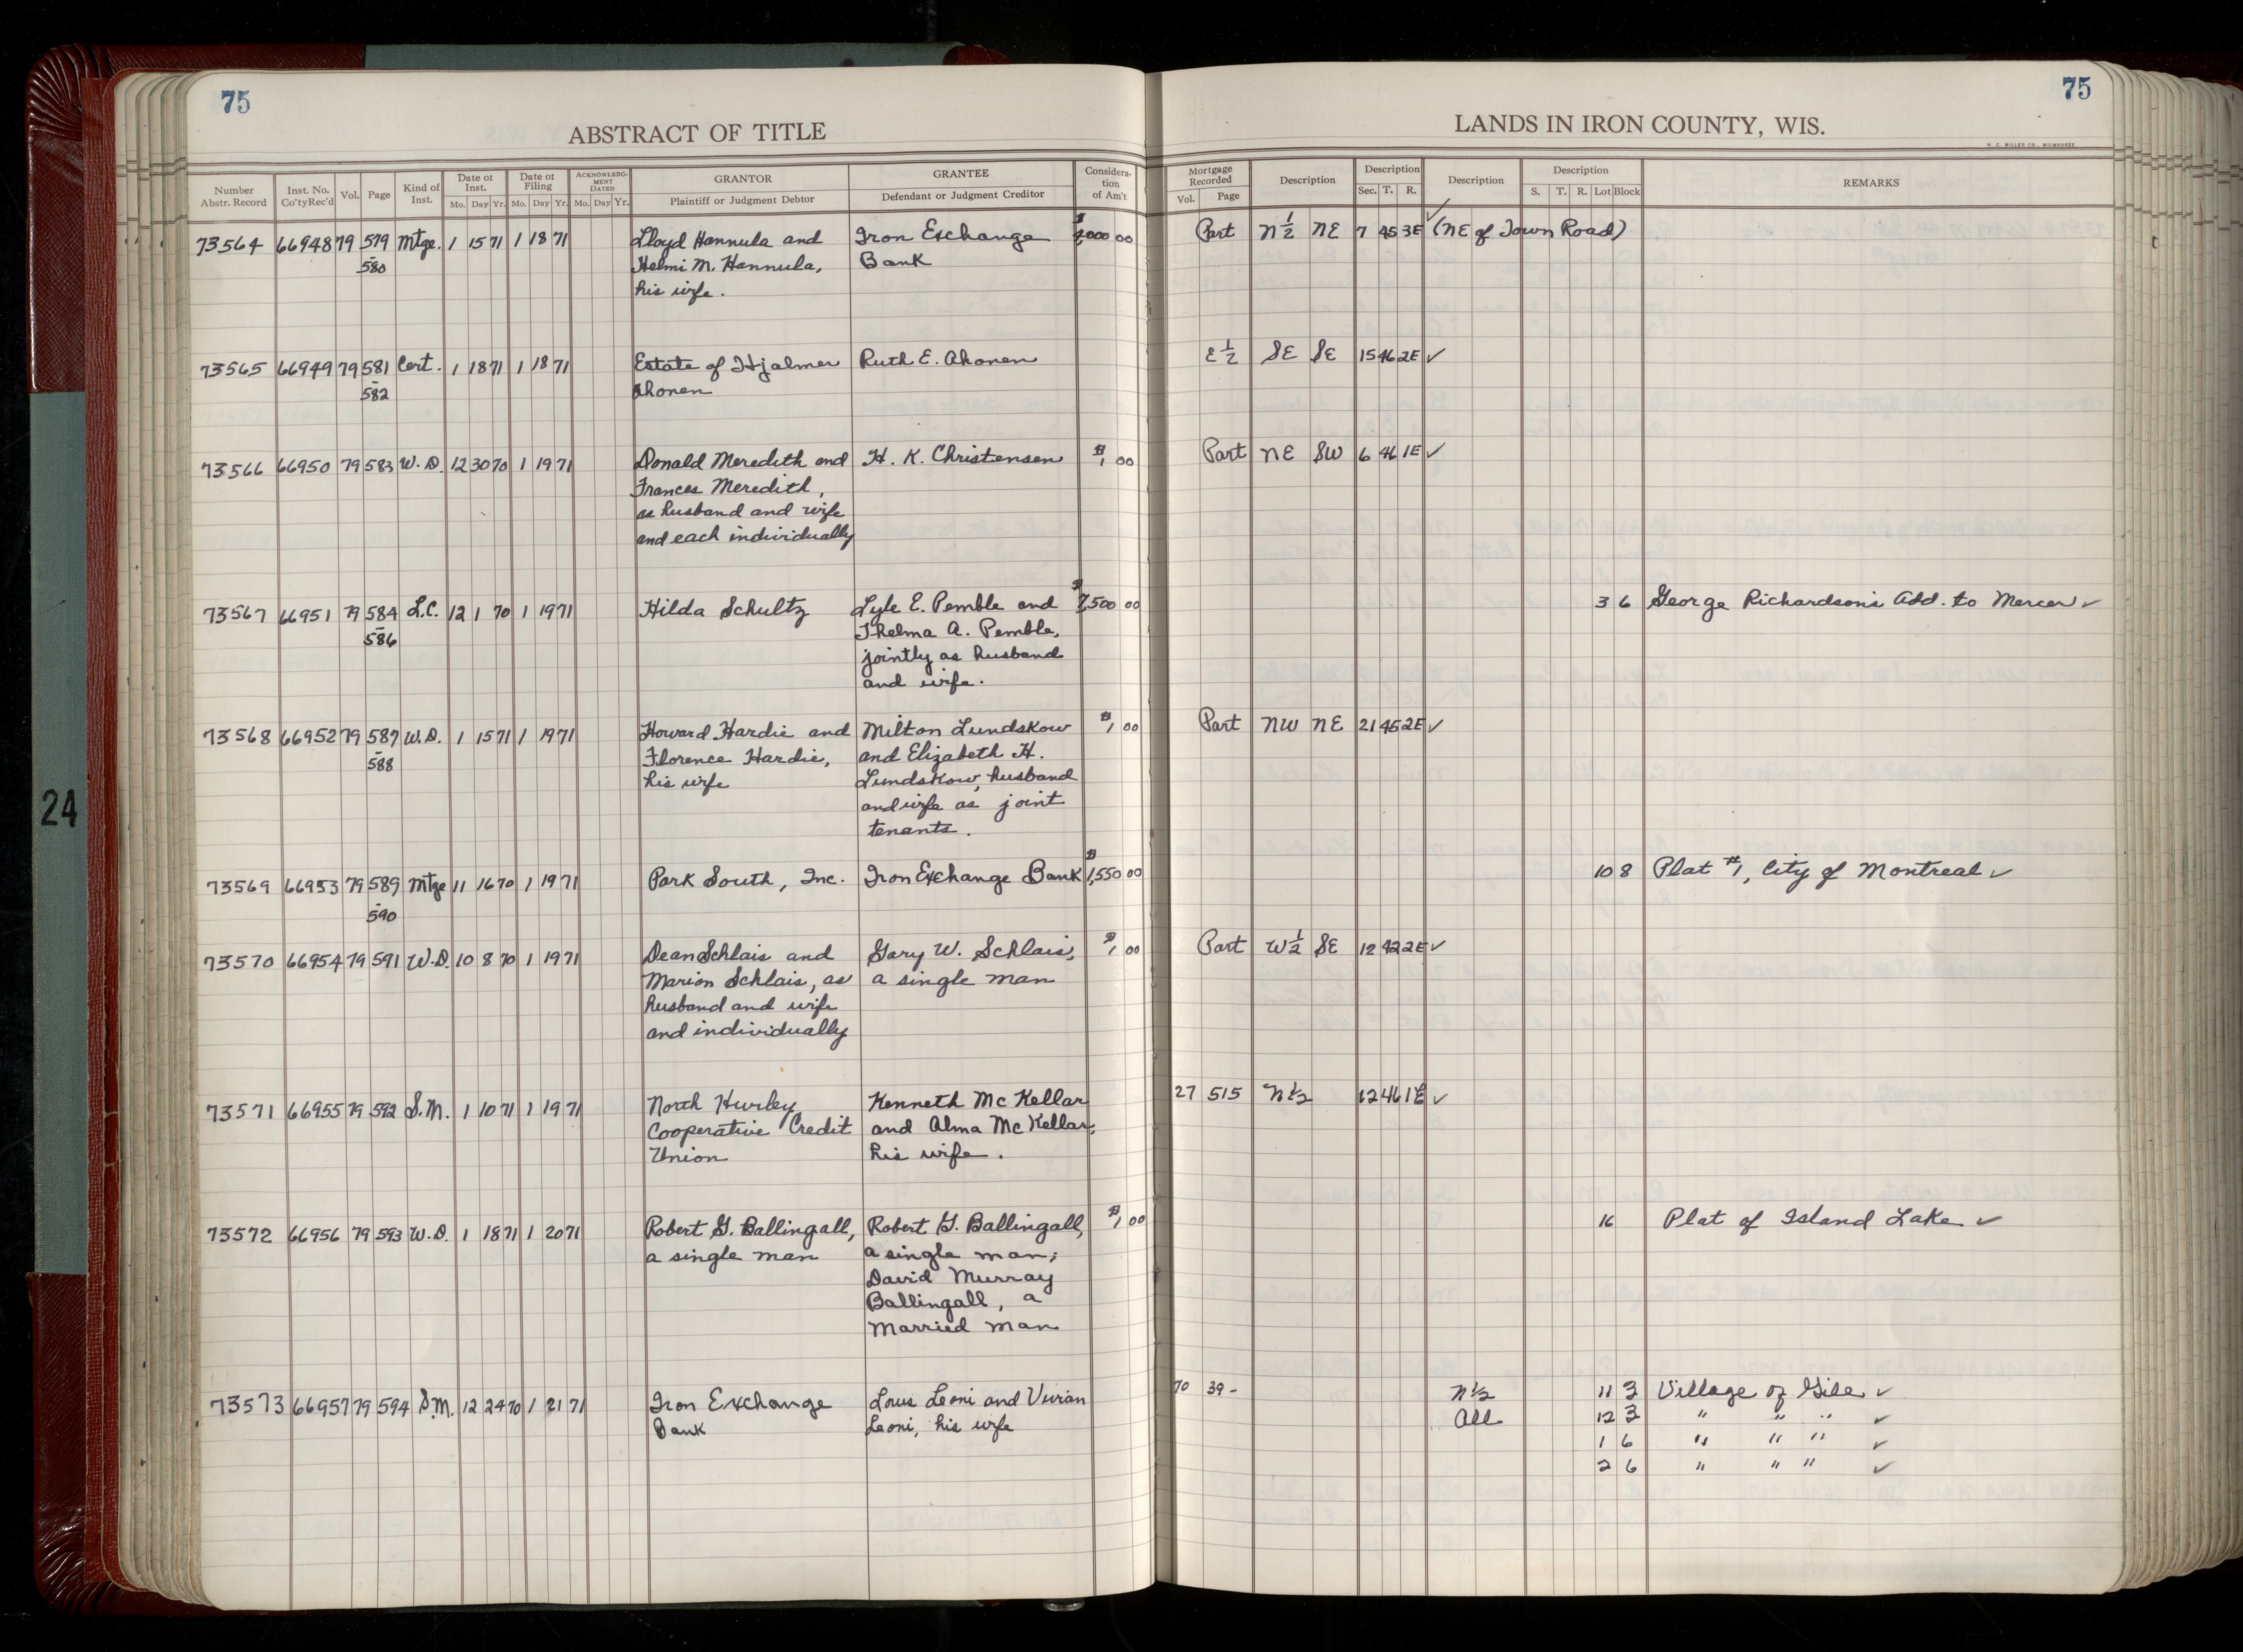 75
75
ABSTRACT OF TITLE
LANDS IN IRON COUNTY, WIS.
H. C. MILLER CO., MILWAUKEE
Number Abstr. Record Inst. No. Co'ty Rec'd Vol. Page Kind of Inst. Date of Inst. Mo. Day Yr. Date of Filing Mo. Day Yr. ACKNOWLEDG-MENT DATED Mo. Day Yr. GRANTOR Plaintiff or Judgment Debtor GRANTEE Defendant or Judgment Creditor Considera-tion of Am't
Mortgage Recorded Vol. Page Description Description Sec. T. R. Description Description S. T. R. Lot Block REMARKS
73564 66948 79 579 Mtge. 1 15 71 1 18 71 Lloyd Hannula and Iron Exchange 000 00 Part N 1/2 NE 7 45 3E ✓ (NE of Town Road)
- 580 Helmi M. Hannula, Bank
his wife.
73565 66949 79 581 Cert. 1 18 71 1 18 71 Estate of Hjalmer Ruth E. Ahonen E 1/2 SE SE 15 46 2E ✓
- 582 Ahonen
73566 66950 79 583 W. D. 12 30 70 1 19 71 Donald Meredith and H. K. Christensen $1 00 Part NE SW 6 46 1E ✓
Frances Meredith,
as husband and wife
and each individually
73567 66951 79 584 L.C. 12 1 70 1 19 71 Hilda Schultz Lyle E. Pemble and $7,500 00 3 6 George Richardson's Add. to Mercer ✓
- 586 Thelma A. Pemble,
jointly as husband
and wife.
73568 66952 79 587 W.D. 1 15 71 1 19 71 Howard Hardie and Milton Lundskow $1 00 Part NW NE 21 45 2E ✓
- 588 Florence Hardie, and Elizabeth H.
his wife Lundskow, husband
and wife as joint
tenants.
73569 66953 79 589 Mtge 11 16 70 1 19 71 Park South, Inc. Iron Exchange Bank $1,550 00 10 8 Plat #1, City of Montreal ✓
- 590
73570 66954 79 591 W.D. 10 8 70 1 19 71 Dean Schlais and Gary W. Schlais, $1 00 Part W 1/2 SE 12 42 2E ✓
Marion Schlais, as a single man
husband and wife
and individually
73571 66955 79 592 S.M. 1 10 71 1 19 71 North Hurley Kenneth McKellar 27 515 N 1/2 12 46 1E ✓
Cooperative Credit and Alma McKellar,
Union his wife.
73572 66956 79 593 W.D. 1 18 71 1 20 71 Robert G. Ballingall, Robert G. Ballingall, $1 00 16 Plat of Island Lake ✓
a single man a single man;
David Murray
Ballingall, a
married man
73573 66957 79 594 S.M. 12 24 70 1 21 71 Iron Exchange Louis Leoni and Vivian 70 39- N 1/2 11 3 Village of Gile ✓
Bank Leoni, his wife All 12 3 " " " ✓
1 6 " " " ✓
2 6 " " " ✓
24